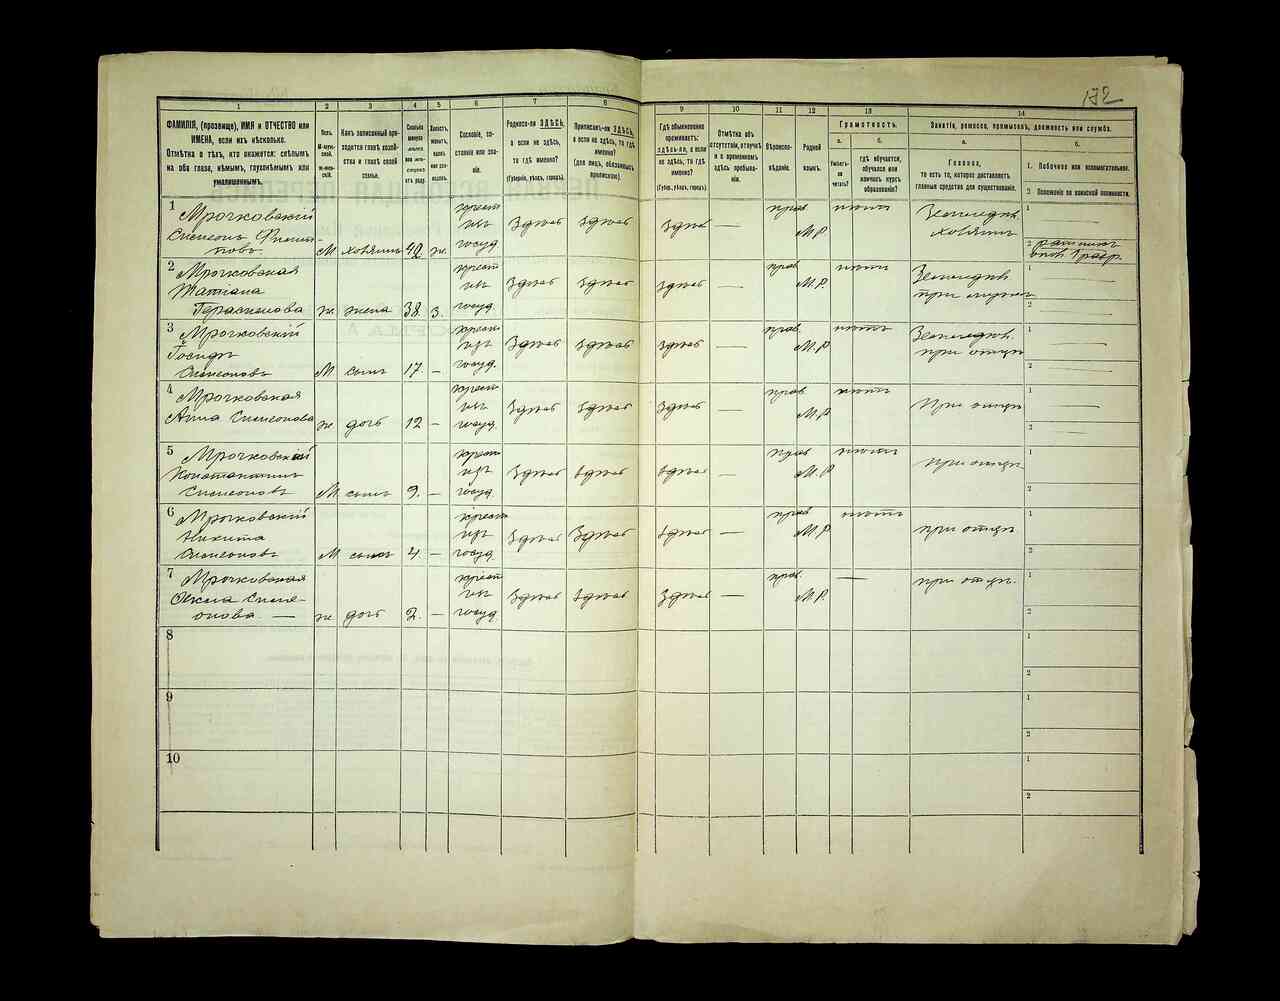 172
1
2
3
4
5
6
7
8
9
10
11
12
13
14
ФАМИЛІЯ, (прозвище), ИМЯ и ОТЧЕСТВО или
ИМЕНА, если ихъ нѣсколько.
Отмѣтка о тѣхъ, кто окажется: слѣпымъ
на оба глаза, нѣмымъ, глухонѣмымъ или
умалишеннымъ.
Полъ.
М-муж-
ской.
Ж-жен-
скій.
Какъ записанный при-
ходится главѣ хозяй-
ства и главѣ своей
семьи.
Сколько
минуло
лѣтъ
или мѣ-
сяцевъ
отъ роду.
Холостъ,
женатъ,
вдовъ
или раз-
веденъ.
Сословіе, со-
стояніе или зва-
ніе.
Родился-ли ЗДѢСЬ,
а если не здѣсь,
то гдѣ именно?
(Губернія, уѣздъ, городъ).
Приписанъ-ли ЗДѢСЬ,
а если не здѣсь, то гдѣ
именно?
(для лицъ, обязанныхъ
припискою).
Гдѣ обыкновенно
проживаетъ:
здѣсь-ли, а если
не здѣсь, то гдѣ
именно?
(Губер., уѣздъ, городъ).
Отмѣтка объ
отсутствіи, отлучкѣ
и о временномъ
здѣсь пребыва-
ніи.
Вѣроиспо-
вѣданіе.
Родной
языкъ.
Грамотность.
а.
б.
Умѣетъ-
ли
читать?
гдѣ обучается,
обучался или
кончилъ курсъ
образованія?
Занятіе, ремесло, промыселъ, должность или служба.
а.
б.
Главное,
то есть то, которое доставляетъ
главныя средства для существованія.
1. Побочное или вспомогательное.
2 Положеніе по воинской повинности.
1 Мрочковскій
Симеонъ Филип-
повъ М хозяинъ 40 ж.
крест
изъ
госуд
Здѣсь Здѣсь Здѣсь —
прав. М.Р. нѣтъ
Земледѣл.
хозяинъ
1 —
2 ратникъ
2 Мрочковская
Татіана
Герасимова ж. жена 38. з.
крест
изъ
госуд.
Здѣсь Здѣсь Здѣсь —
прав. М.Р. нѣтъ
Земледѣл.
при мужѣ
1 —
2 —
3 Мрочковскій
Іосифъ
Симеоновъ М сынъ 17. —
крест
изъ
госуд.
Здѣсь Здѣсь Здѣсь —
прав. М.Р. нѣтъ
Земледѣл.
при отцѣ
1 —
2 —
4 Мрочковская
Анна Симеонова ж дочь 12 —
крест
изъ
госуд.
Здѣсь Здѣсь Здѣсь —
прав. М.Р. нѣтъ
При отцѣ
1 —
2 —
5 Мрочковскій
Константинъ
Симеоновъ М. сынъ 9. —
крест
изъ
госуд.
Здѣсь Здѣсь Здѣсь —
прав. М.Р. нѣтъ
При отцѣ
1
2
6 Мрочковскій
Никита
Симеоновъ М сынъ 4. —
крест
изъ
госуд.
Здѣсь Здѣсь Здѣсь —
прав М.Р. нѣтъ
при отцѣ
1
2
7 Мрочковская
Симе-
онова. — ж. дочь 2. —
крест
изъ
госуд.
Здѣсь Здѣсь Здѣсь —
прав. М.Р. —
при отцѣ.
1
2
8
1
2
9
1
2
10
1
2